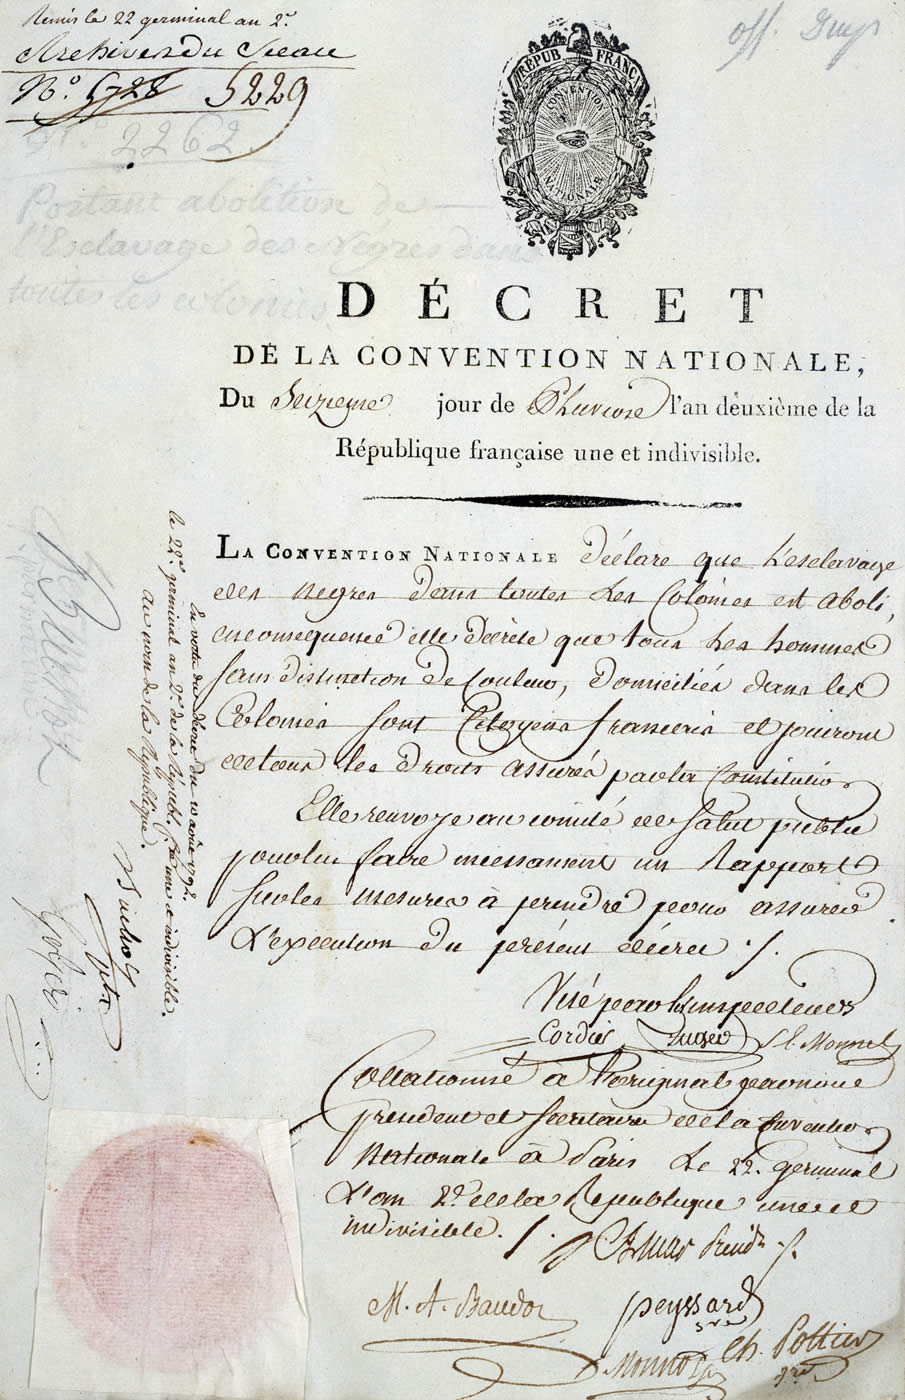 Remis le 22 germinal an 2e
Archives du Sceau
No. 5728 5229
Off.
No. 2262.
Portant abolition de
l'Esclavage des Nègres dans
toutes les colonies.
RÉPUB. FRANÇA.
CONVENTION
NATIONALE
DÉCRET
DE LA CONVENTION NATIONALE,
Du Seizieme jour de Pluviose l'an deuxième de la
République française une et indivisible.
LA CONVENTION NATIONALE Déclare que L'esclavage
des Negres dans toutes Les Colonies est aboli,
en consequence elle Décrète que tous Les hommes
sans distinction de Couleur, Domiciliés dans les
Colonies sont Citoyens français et jouiront
de tous les Droits assurés par la Constitution
Elle renvoye au comité de Salut public
pour lui faire incessament un Rapport
sur les mesures à prendre pour assurer
L'execution du présent décret ./.
Visé par les inspecteurs
Cordier Auger S. E. Monnel
Collationné à l'original par nous
president et Secrétaires de la Convention
Nationale à Paris Le 22. germinal
L'an 2e. de la République une et
indivisible. ./.
Amar Présid.
M. A. Baudot
peyssard
sre
Monnot
Ch. Pottier
En vertu du décret du 10 août 1792.
le 22e. germinal an 2e. de la Républ. fse. une et indivisible.
au nom de la République.
Buchot
Gohier